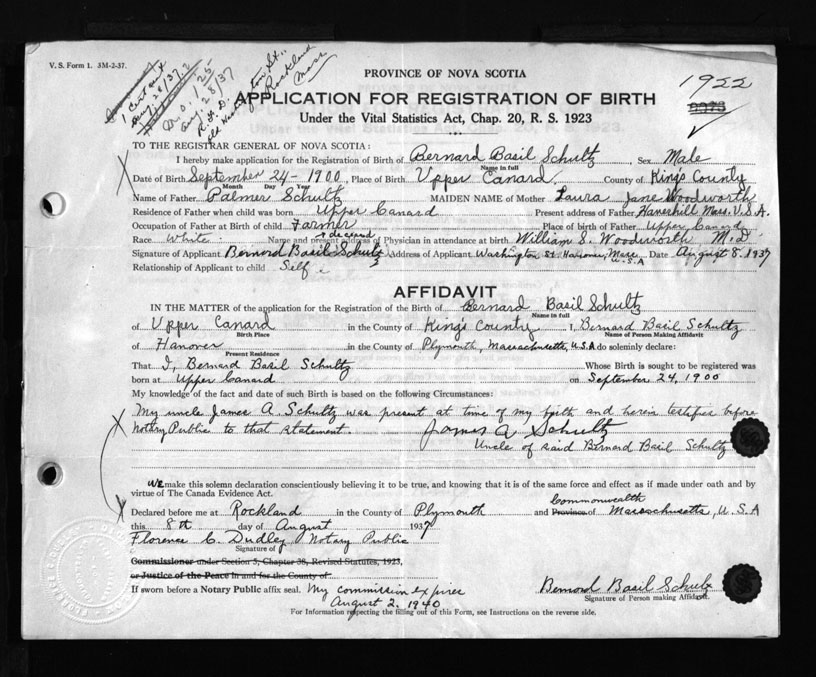 V. S. Form 1. 3M-2-37.
PROVINCE OF NOVA SCOTIA
1922
APPLICATION FOR REGISTRATION OF BIRTH
9975
Under the Vital Statistics Act, Chap. 20, R. S. 1923
R.F.D.
Rockland
Mass
TO THE REGISTRAR GENERAL OF NOVA SCOTIA:
I hereby make application for the Registration of Birth of Bernard Basil Schultz, Sex Male
Name in full
Date of Birth September 24-1900, Place of Birth Upper Canard, County of Kings County
Month Day Year
Name of Father Palmer Schultz MAIDEN NAME of Mother Laura Jane Woodworth
Residence of Father when child was born Upper Canard Present address of Father Haverhill Mass. U.S.A.
Occupation of Father at Birth of child Farmer Place of birth of Father Upper Canard
Race White Name and present address of Physician in attendance at birth William S. Woodworth M.D.
Signature of Applicant Bernard Basil Schultz Address of Applicant Washington St. Hanover, Mass. U.S.A Date August 8, 1937
Relationship of Applicant to child Self
AFFIDAVIT
IN THE MATTER of the application for the Registration of Birth of Bernard Basil Schultz
Name in full
of Upper Canard in the County of Kings County I, Bernard Basil Schultz
Birth Place Name of Person Making Affidavit
of Hanover in the County of Plymouth, Massachusetts, U.S.A do solemnly declare:
Present Residence
That I, Bernard Basil Schultz Whose Birth is sought to be registered was
born at Upper Canard on September 24, 1900
My knowledge of the fact and date of such Birth is based on the following Circumstances:
My uncle James A. Schultz was present at time of my birth and herein testifies before
Notary Public to that statement. James A Schultz
Uncle of said Bernard Basil Schultz
We make this solemn declaration conscientiously believing it to be true, and knowing that it is of the same force and effect as if made under oath and by
virtue of The Canada Evidence Act.
Commonwealth
Declared before me at Rockland in the County of Plymouth and Province of Massachusetts, U.S.A
this 8th day of August 1937
Florence C. Dudley Notary Public
Signature of
Commissioner under Section 5, Chapter 38, Revised Statutes, 1923,
or Justice of the Peace in and for the County of
If sworn before a Notary Public affix seal. My commission expires
August 2, 1940
Bernard Basil Schultz
Signature of Person making Affidavit.
For Information respecting the filling out of this Form, see Instructions on the reverse side.